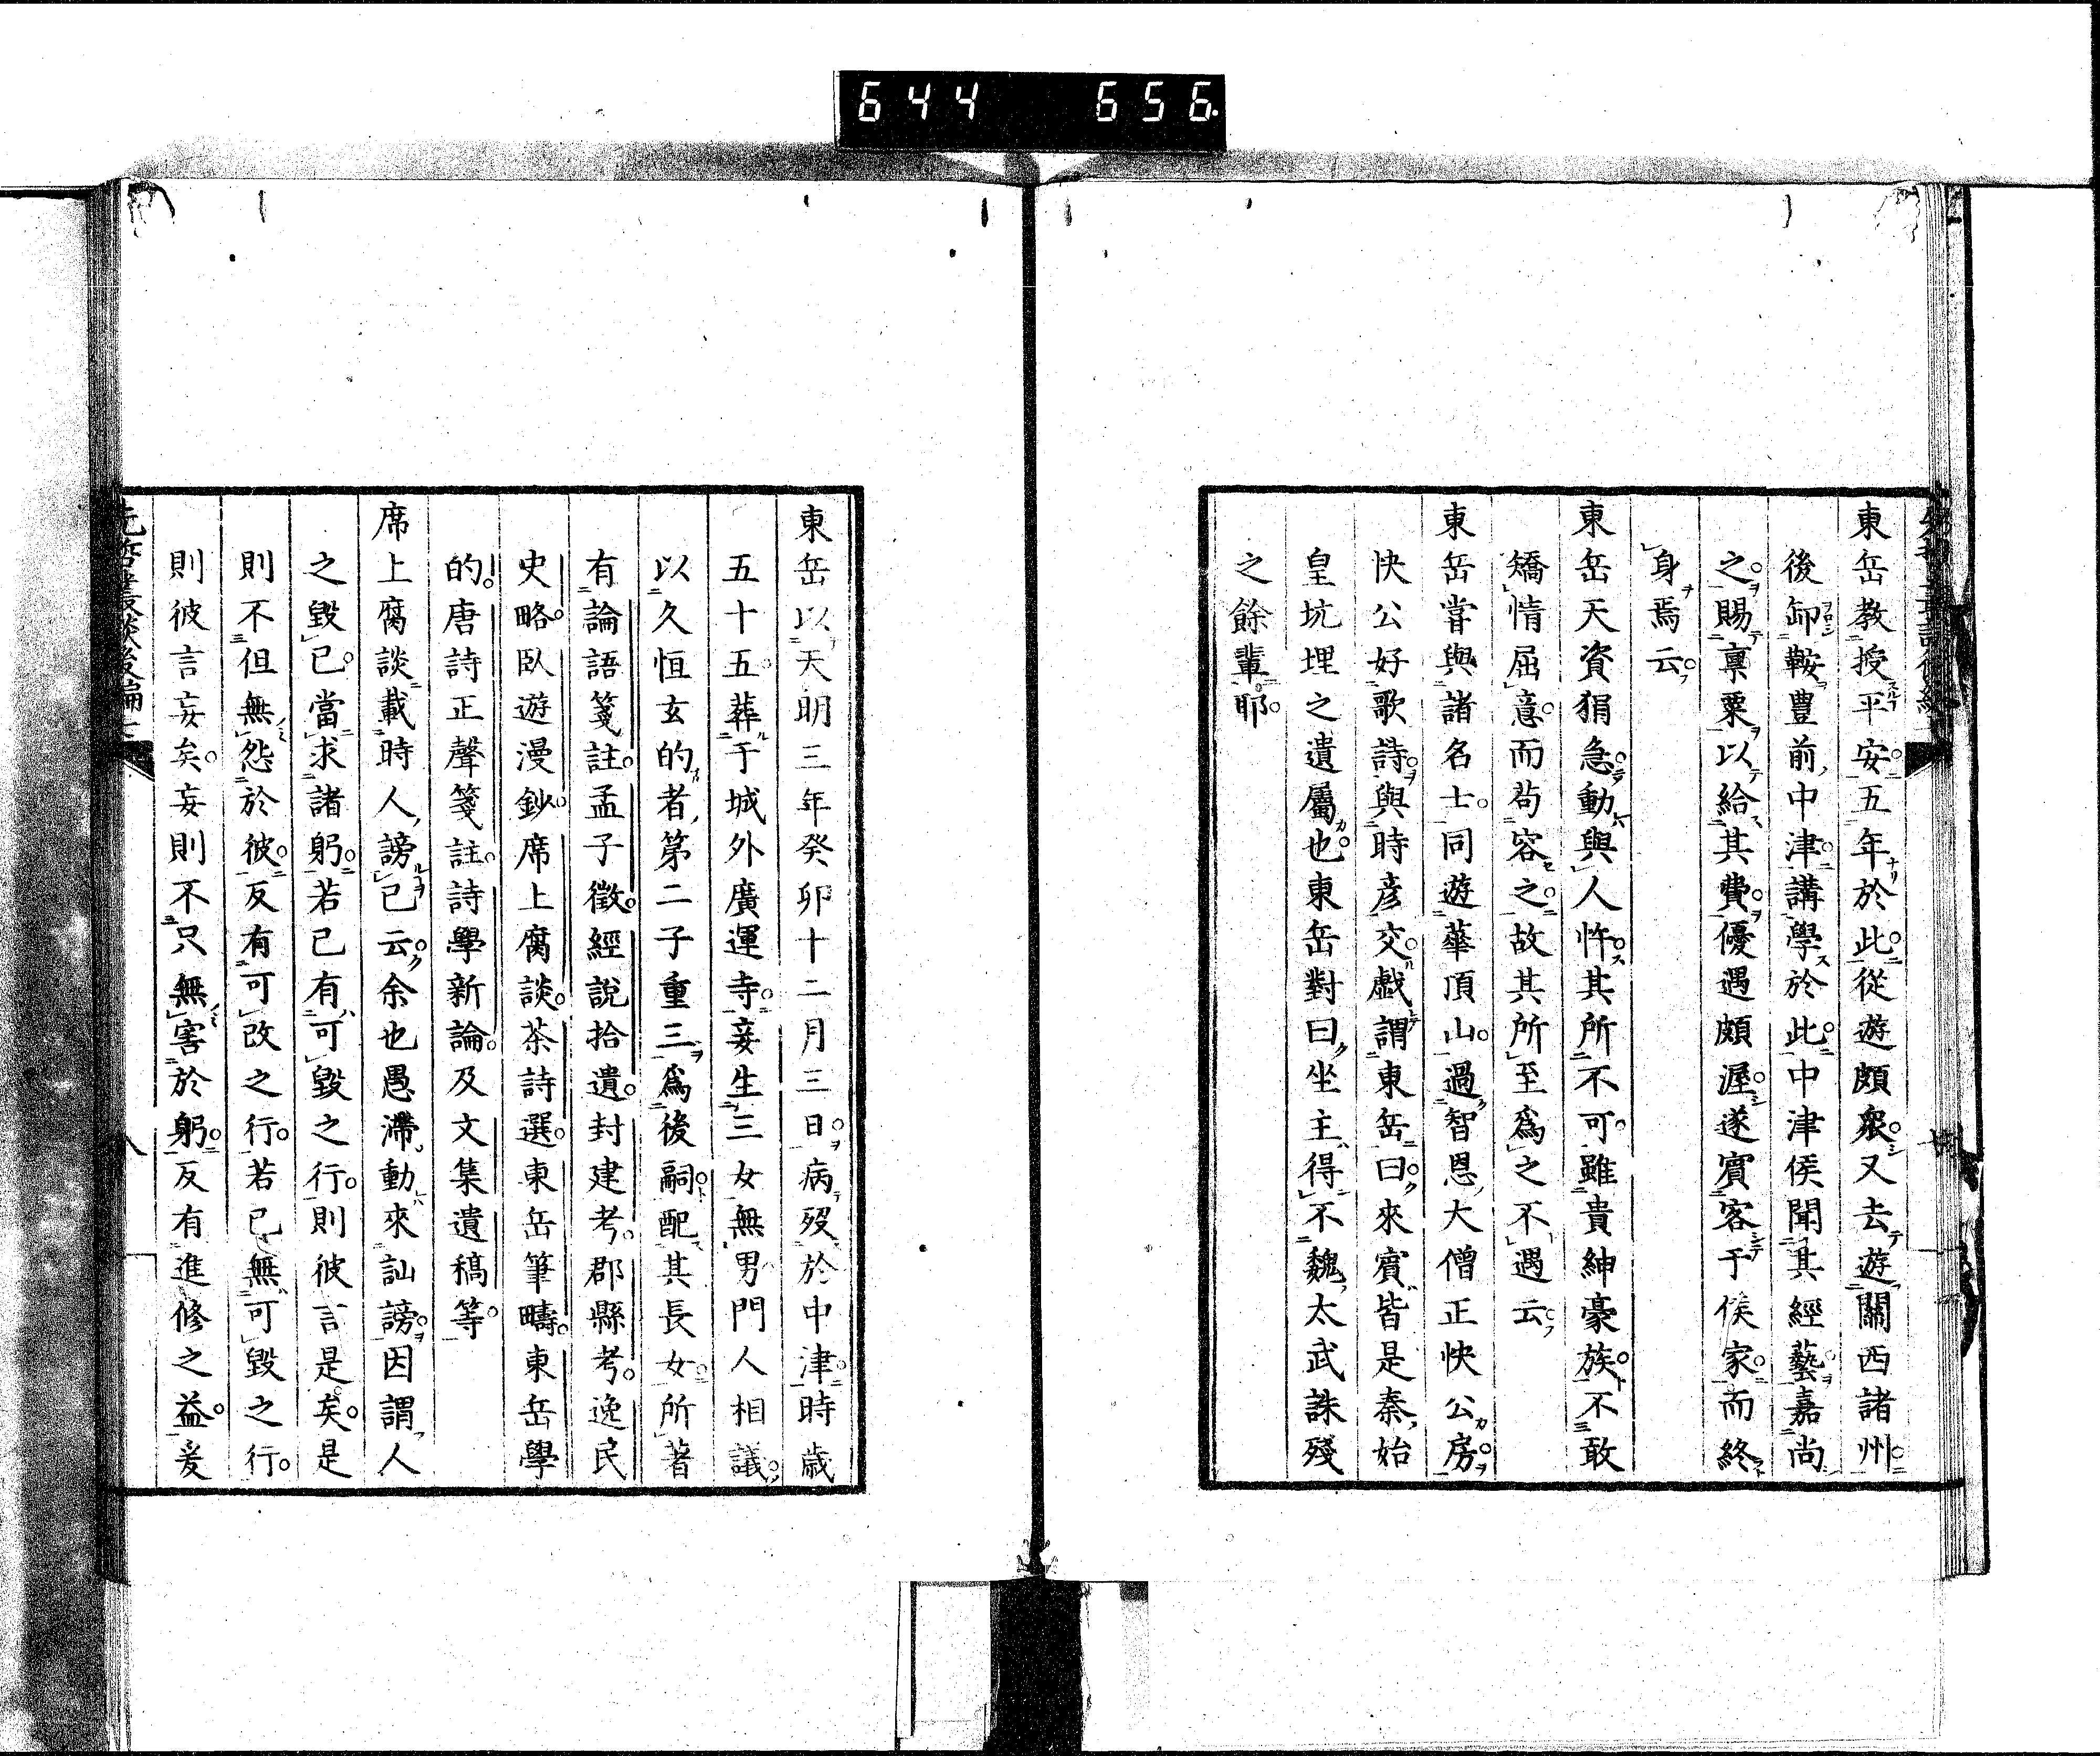 644 656
東岳教授平安五年於此從遊頗衆又去遊關西諸州
後卸鞍豊前中津講學於此中津侯聞其經藝嘉尚
之賜禀粟以給其費優遇頗渥遂賓客于侯家而終
身焉云
東岳天資狷急動與人忤其所不可雖貴紳豪族不敢
矯情屈意而苟容之故其所至為之不遇云
東岳甞與諸名士同遊華頂山過智恩大僧正快公房
快公好歌詩與時彦交戲謂東岳曰來賓皆是秦始
皇坑埋之遺屬也東岳對曰坐主得不魏太武誅殘
之餘輩耶
東岳以天明三年癸卯十二月三日病歿於中津時歳
五十五葬于城外廣運寺妾生三女無男門人相議
以久恒玄的者第二子重三為後嗣配其長女所著
有論語箋註孟子徵經說拾遺封建考郡縣考逸民
史略臥遊漫鈔席上腐談茶詩選東岳筆疇東岳學
的唐詩正聲箋註詩學新論及文集遺稿等
席上腐談載時人謗己云余也愚滯動來訕謗因謂人
之毀己當求諸躬若己有可毀之行則彼言是矣是
則不但無怨於彼反有可改之行若己無可毀之行
則彼言妄矣妄則不只無害於躬反有進修之益爰
先哲叢談後編七
八